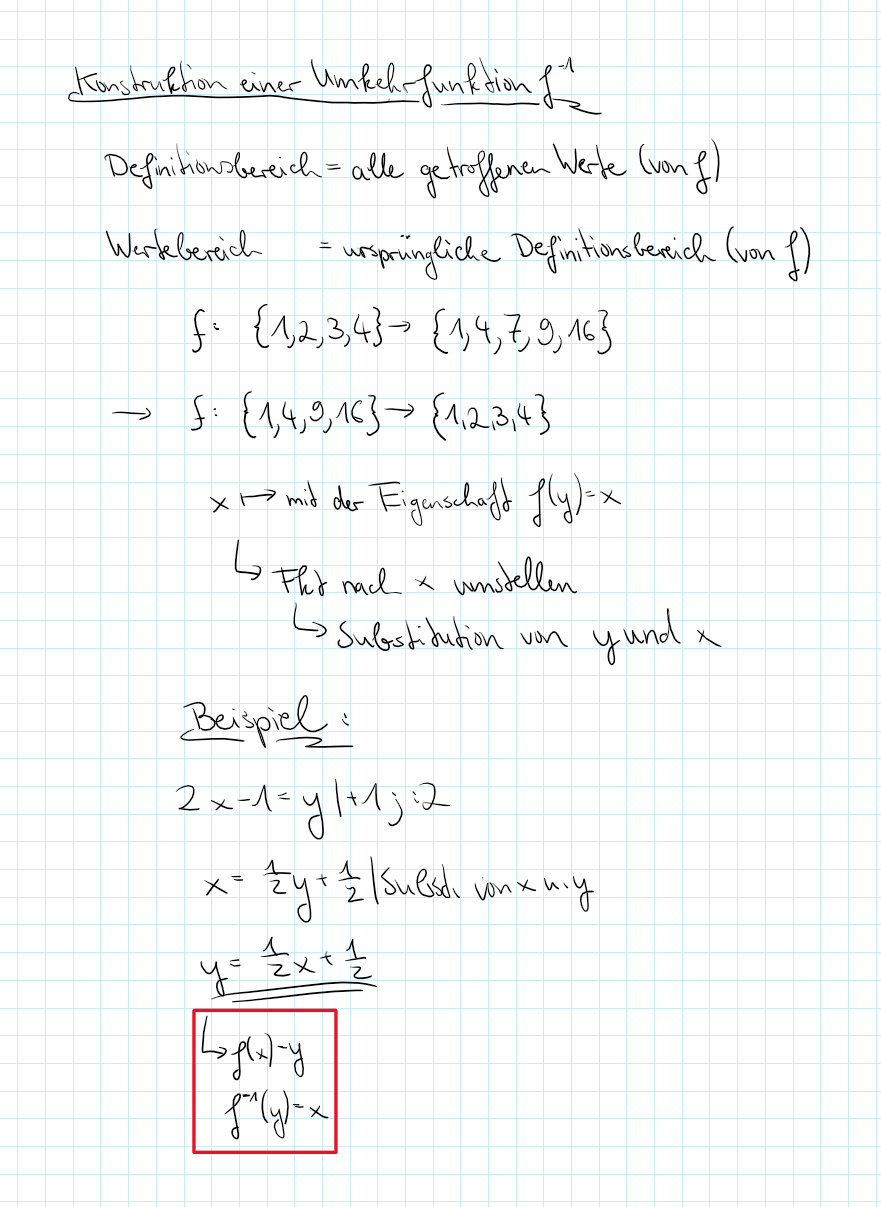 Konstruktion einer Umkehrfunktion f⁻¹
Definitionsbereich = alle getroffenen Werte (von f)
Wertebereich = ursprüngliche Definitionsbereich (von f)
f: {1,2,3,4} → {1,4,7,9,16}
→ f: {1,4,9,16} → {1,2,3,4}
x ↦ mit der Eigenschaft f(y)=x
↳ Fkt nach x umstellen
↳ Substitution von y und x
Beispiel:
2x-1=y |+1; :2
x= 1/2 y + 1/2 | Subst. von x u. y
y= 1/2 x + 1/2
↳ f(x)=y
f⁻¹(y)=x